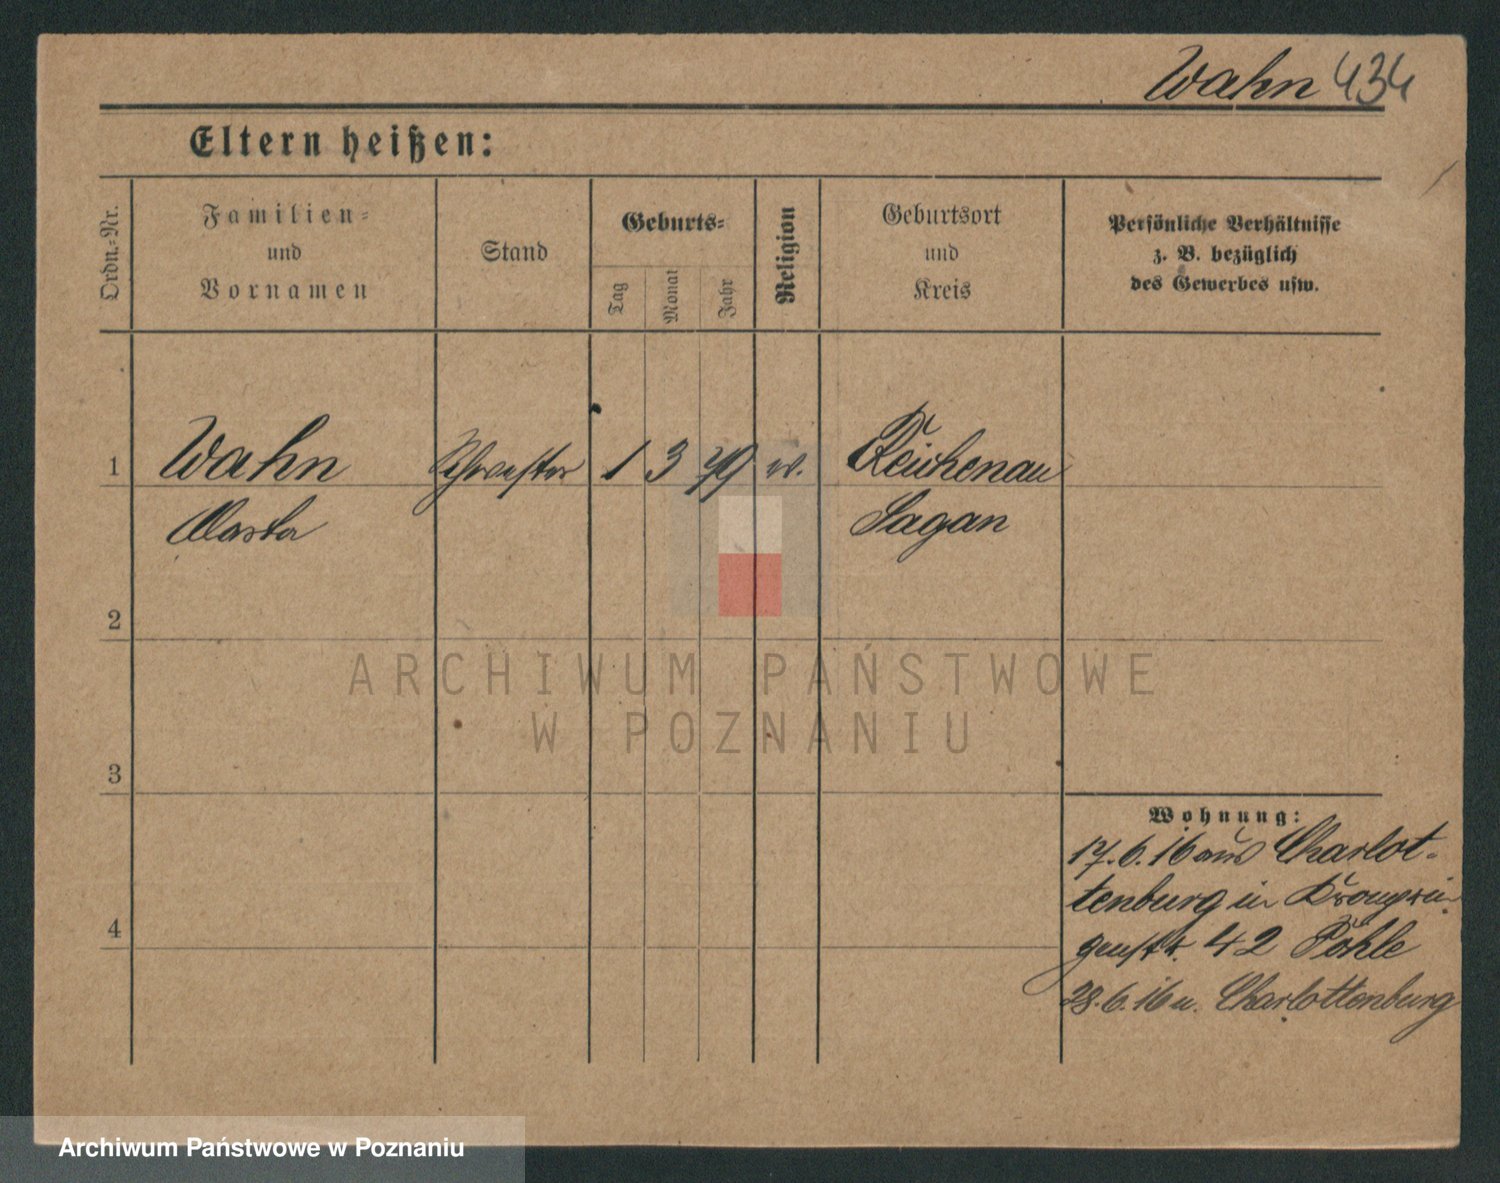 Wahn 434
Eltern heißen:
Ordn.-Nr.
Familien-
und
Vornamen
Stand
Geburts-
Tag
Monat
Jahr
Religion
Geburtsort
und
Kreis
Persönliche Verhältnisse
z. B. bezüglich
des Gewerbes usw.
1 Wahn Schwester 1 3 79 Reichenau
Sagan
2
ARCHIWUM PAŃSTWOWE
W POZNANIU
3
Wohnung:
17.6.16 aus Charlot-
tenburg in Kronprin-
zenstr. 42 Pohle
4
28.6.16 n. Charlottenburg
Archiwum Państwowe w Poznaniu